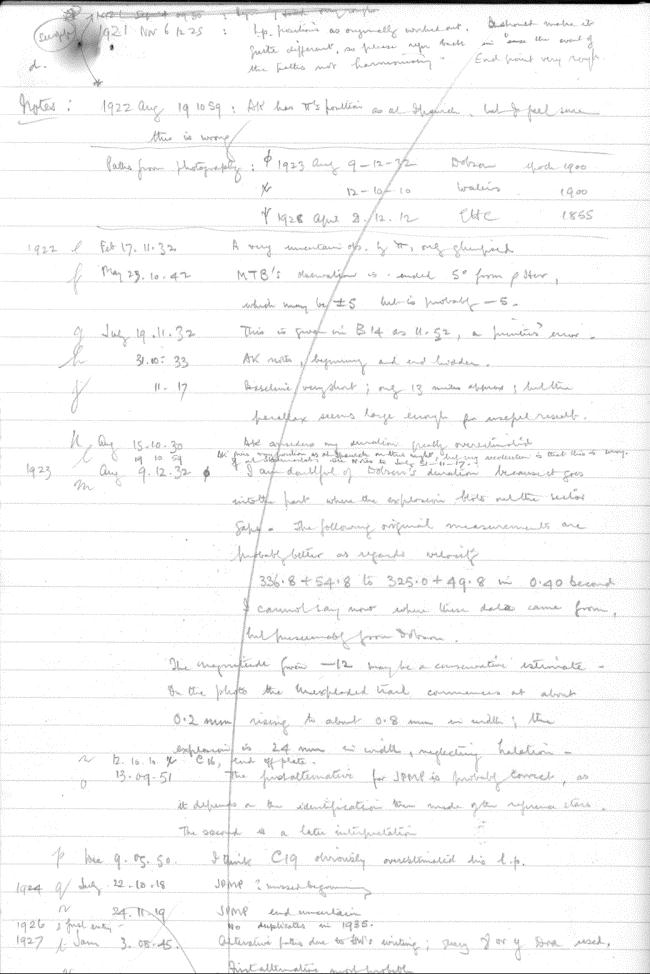 1921 Nov 6 12 25 : h.p. positions as originally worked out. should make it
quite different, so please refer back
the paths not harmonising. End point very rough.
d.
Notes : 1922 Aug 19 10 59 : AK has π's position as at , but I feel sure
this is wrong
Paths from photography : φ 1923 Aug 9-12-32 Dobson epoch 1900
12-10-10 Waters 1900
1928 April 8.12.12 1855
1922 e Feb 17.11.32 A very uncertain obs. by π, only glimpsed
f May 23.10.42 MTB's observation is ended 5° from ρ Her,
which may be ±5 but is probably -5.
g July 19.11.32 This is given in B14 as 11.52, a printers' error.
h 31.10.33 AK notes, beginning and end hidden.
j 11.17 Baseline very short ; only 13 miles approx ; but the
parallax seems large enough for useful result.
k Aug 15.10.30 AK considers my duration greatly overestimated
l 19 10 59 AK gives my position as at on this night, but my recollection is that this is wrong.
1923 m Aug 9.12.32 φ I am doubtful of Dobson's duration because it goes
into the part where the explosion blots out the sector
gaps. The following original measurements are
probably better as regards velocity
336.8 + 54.8 to 325.0 + 49.8 in 0.40 second
I cannot say now where these data came from,
but presumably from Dobson.
The magnitude given -12 may be a conservative estimate.
On the photo the unexploded trail commences at about
0.2 mm rising to about 0.8 mm in width ; the
explosion is 24 mm in width, neglecting halation.
n 12.10.10 C16, end off plate.
o 13.09.51 The first alternative for JPMP is probably correct, as
it depends on the identification then made of the reference stars.
The second is a later interpretation
p Dec 9.05.50. I think C19 obviously overestimated his h.p.
1924 q July 22.10.18 JPMP ? missed beginning
r 24.11.19 JPMP end uncertain
1926 s first entry No duplicates in 1935.
1927 t Jan 3.08.45. Alternative paths due to writing ; or γ used.
First alternative most probable